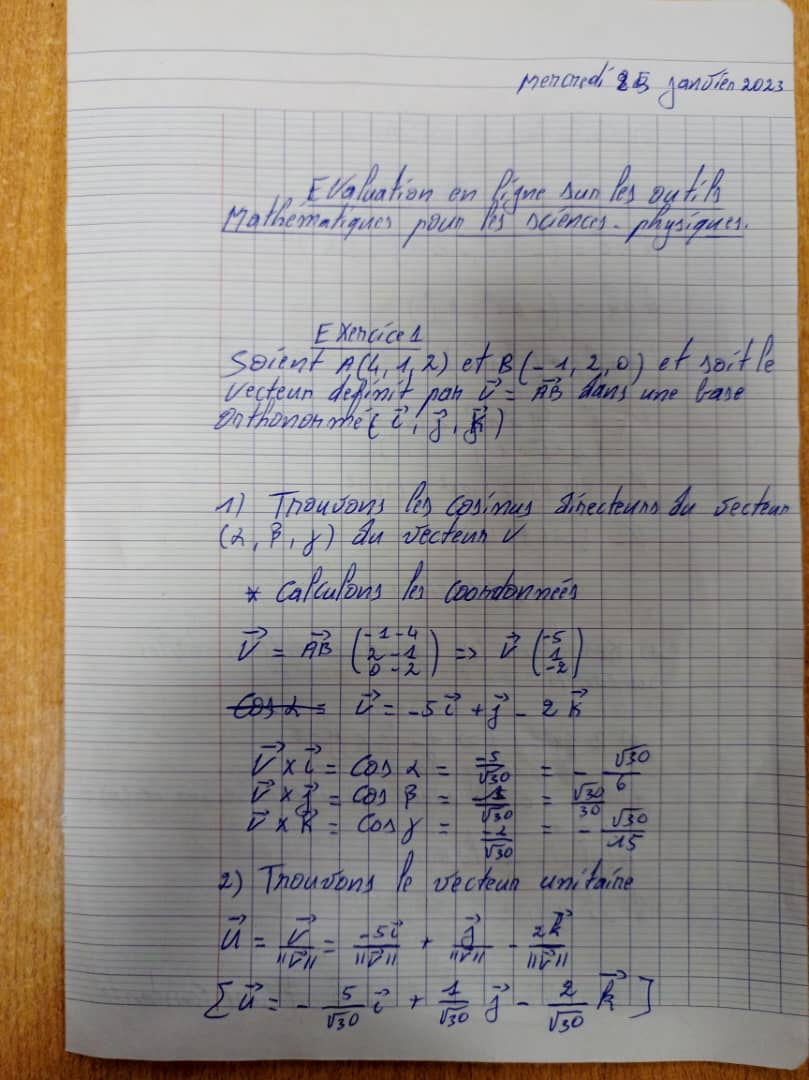 Mercredi 25 janvier 2023
Evaluation en ligne sur les outils
Mathématiques pour les sciences-physiques.
Exercice 1
Soient A(4,1,2) et B(-1,2,0) et soit le
vecteur definit par V⃗ = AB⃗ dans une base
Orthonormé (i⃗, j⃗, k⃗)
1) Trouvons les cosinus directeurs du vecteur
(α, β, γ) du vecteur V
* Calculons les coordonnées
V⃗ = AB⃗ (-1-4 ; 2-1 ; 0-2) => V⃗ (-5 ; 1 ; -2)
V⃗ = -5i⃗ + j⃗ - 2k⃗
V⃗ x i⃗ = Cos α = -5/√30 = - √30/6
V⃗ x j⃗ = Cos β = 1/√30 = √30/30
V⃗ x k⃗ = Cos γ = -2/√30 = - √30/15
2) Trouvons le vecteur unitaire
U⃗ = V⃗/"V⃗" = -5i⃗/"V⃗" + j⃗/"V⃗" - 2k⃗/"V⃗"
[u⃗ = - 5/√30 i⃗ + 1/√30 j⃗ - 2/√30 k⃗]